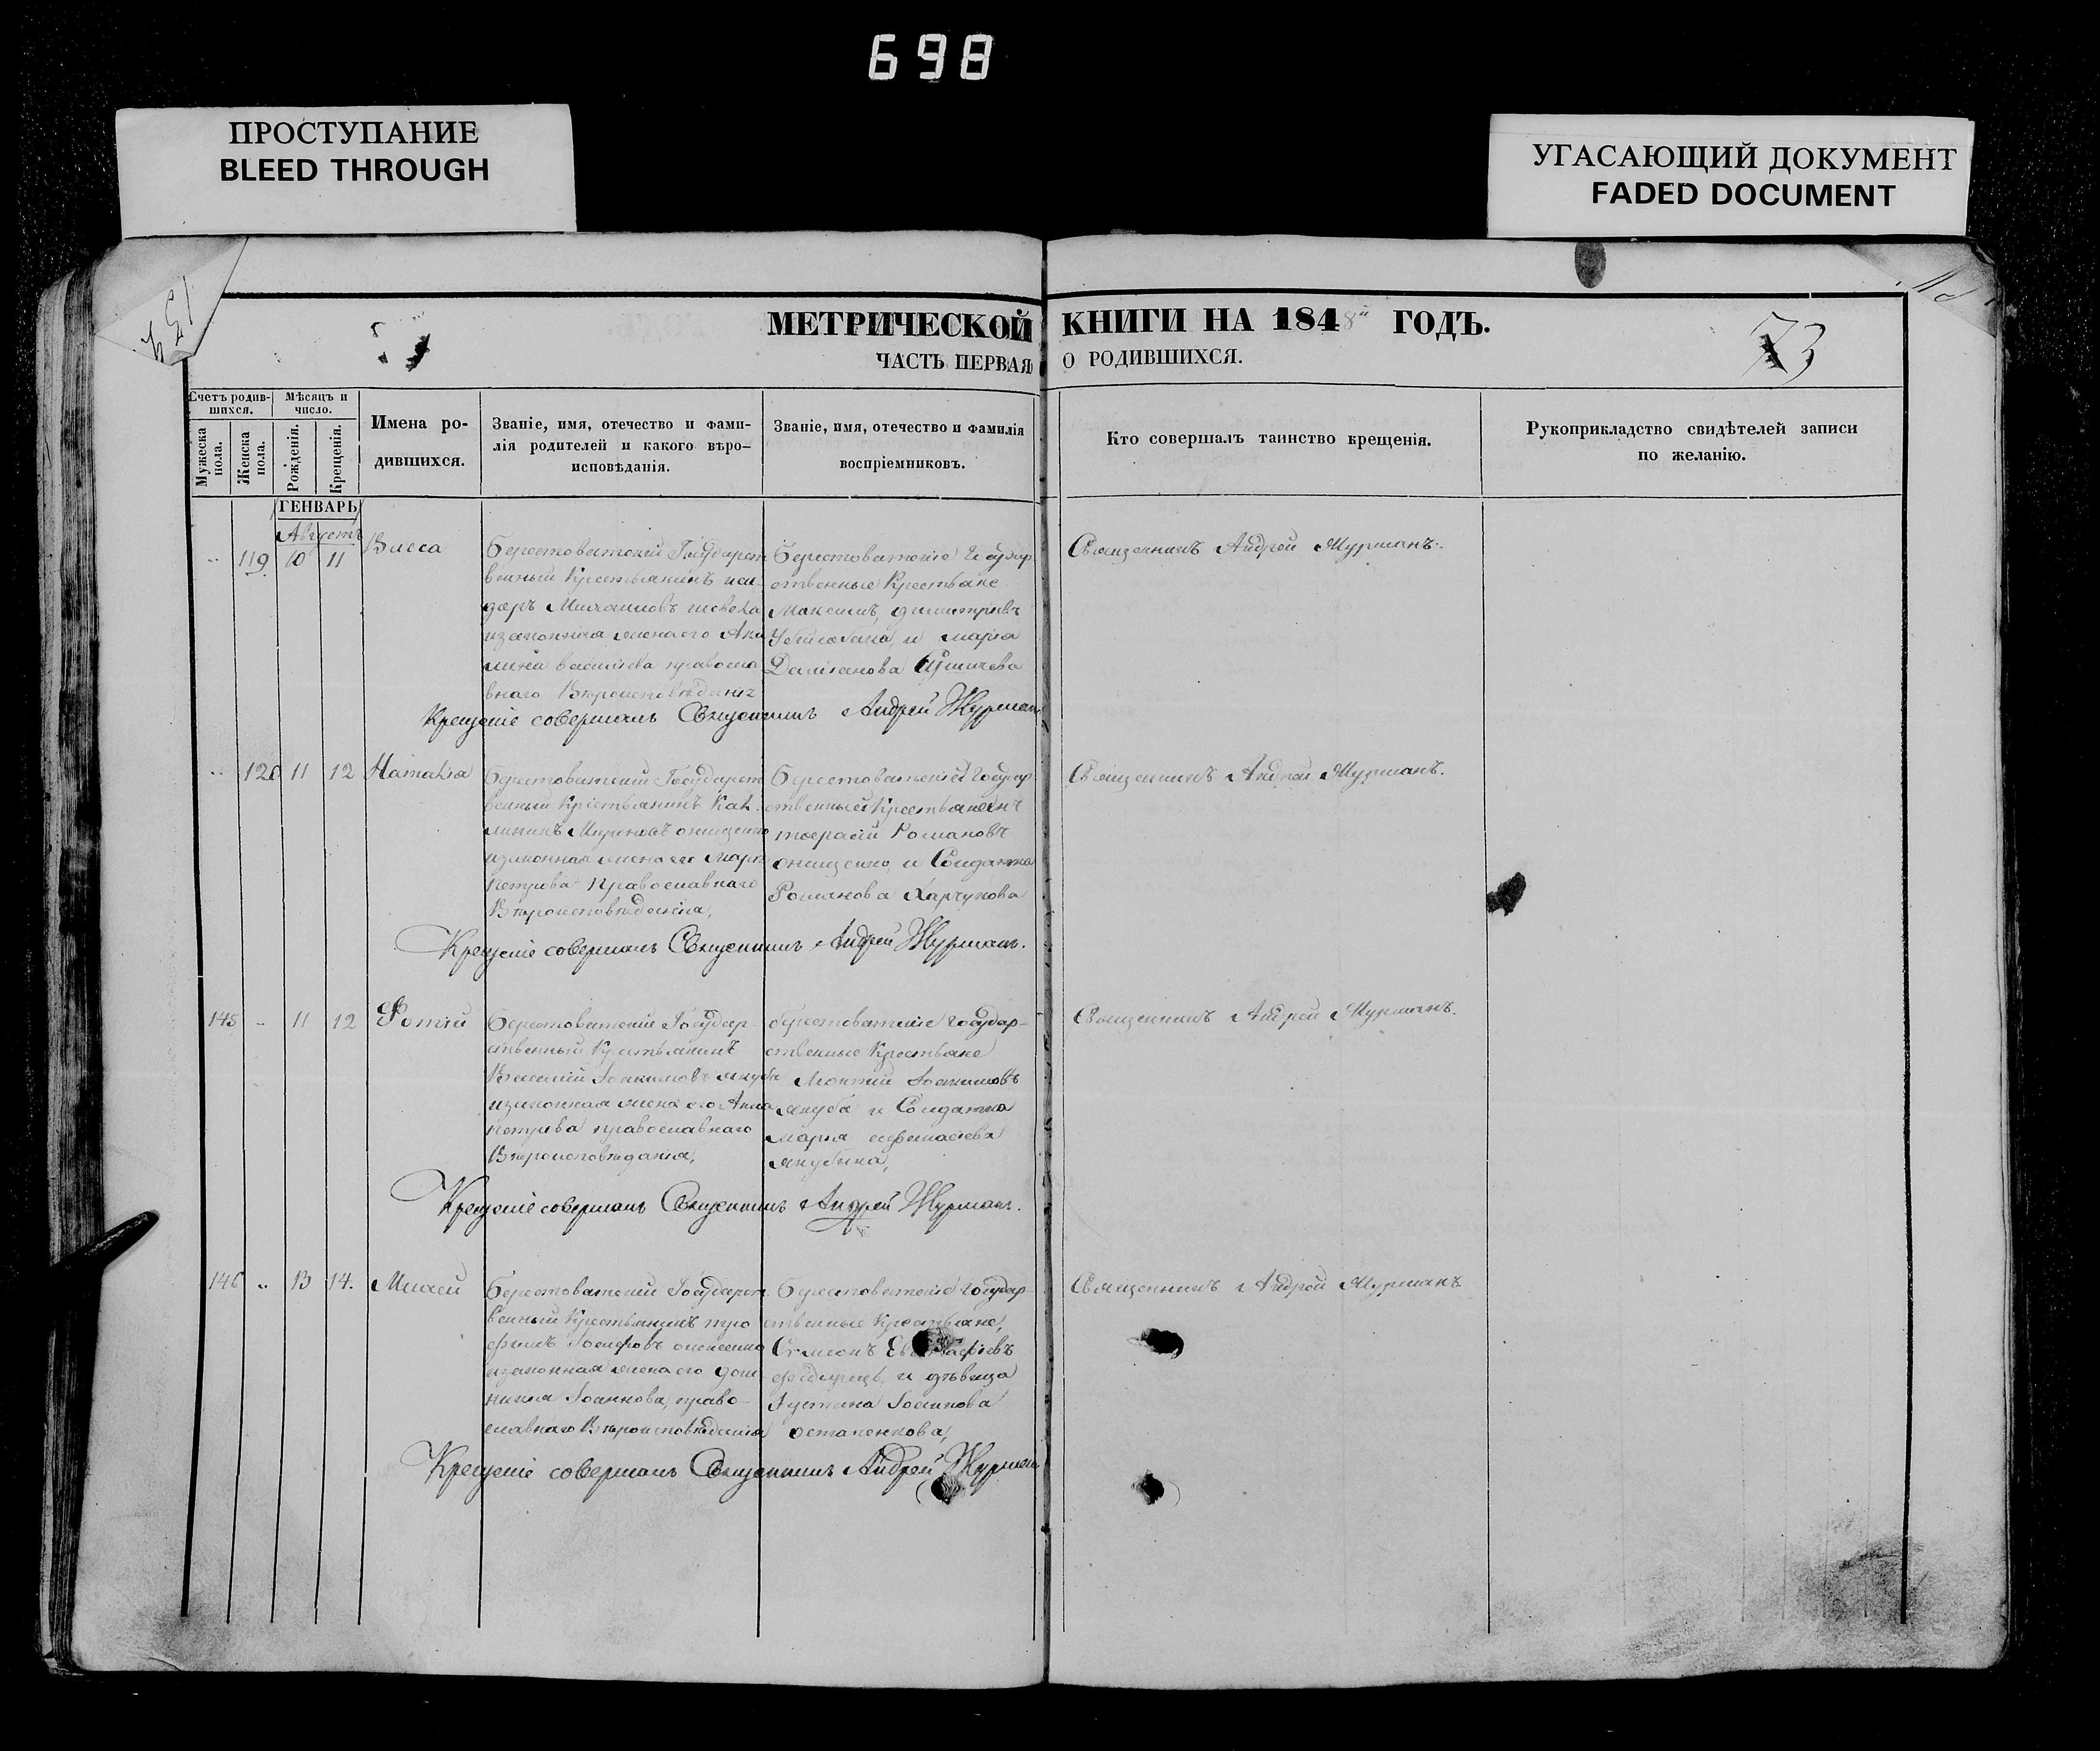 698
ПРОСТУПАНИЕ
BLEED THROUGH
УГАСАЮЩИЙ ДОКУМЕНТ
FADED DOCUMENT
МЕТРИЧЕСКОЙ КНИГИ НА 1848й ГОДЪ.
73
ЧАСТЬ ПЕРВАЯ О РОДИВШИХСЯ.
Счетъ родив-
шихся.
Мужеска
пола.
Женска
пола.
Мѣсяцъ и
число.
Рожденія.
Крещенія.
Имена ро-
дившихся.
Званіе, имя, отечество и фами-
лія родителей и какого вѣро-
исповѣданія.
Званіе, имя, отечество и фамилія
воспріемниковъ.
Кто совершалъ таинство крещенія.
Рукоприкладство свидѣтелей записи
по желанію.
ГЕНВАРЬ
Августъ
119 10 11 Васса
Берестоватскій Государст
венный Крестьянинъ иси-
доръ
изаконная жена его Аки
лина васильева правосла
внаго Вѣроисповѣданія
Берестоватскіе Государ
ственные Крестьяне
Максимъ димитріевъ
и марѳа
Даміанова
Священникъ Андрей Журманъ.
Крещеніе совершалъ Священникъ Андрей Журманъ
120 11 12 Наталія
Берестоватскій Государст
венный Крестьянинъ Кал-
линикъ Мироновъ онищенко
изаконная жена его
петрова Православнаго
Вѣроисповѣданія,
Берестоватскій Государ
ственный Крестьянинъ
Романовъ
онищенко, и Солдатка
Романова Харчукова
Священникъ Андрей Журманъ.
Крещеніе совершалъ Священникъ Андрей Журманъ.
145 11 12 Фотій
Берестоватскій Государ-
ственный Крестьянинъ
Василій Іоакимовъ якуба
изаконная жена его Анна
петрова православнаго
Вѣроисповѣданія,
берестоватскіе Государ-
ственные Крестьяне
Іоакимовъ
якуба и Солдатка
марѳа
якубина,
Священникъ Андрей Журманъ.
Крещеніе совершалъ Священникъ Андрей Журманъ.
146 13 14. Михей
Берестоватскій Государст
венный Крестьянинъ тро
фимъ Іосифовъ
изаконная жена его дом
никия Іоаннова, право-
славнаго Вѣроисповѣданія
Берестоватскіе Государ
ственные Крестьяне,
Симеонъ
и дѣвица
Іустина Іосифова
остапенкова,
Священникъ Андрей Журманъ
Крещеніе совершалъ Священникъ Андрей Журманъ